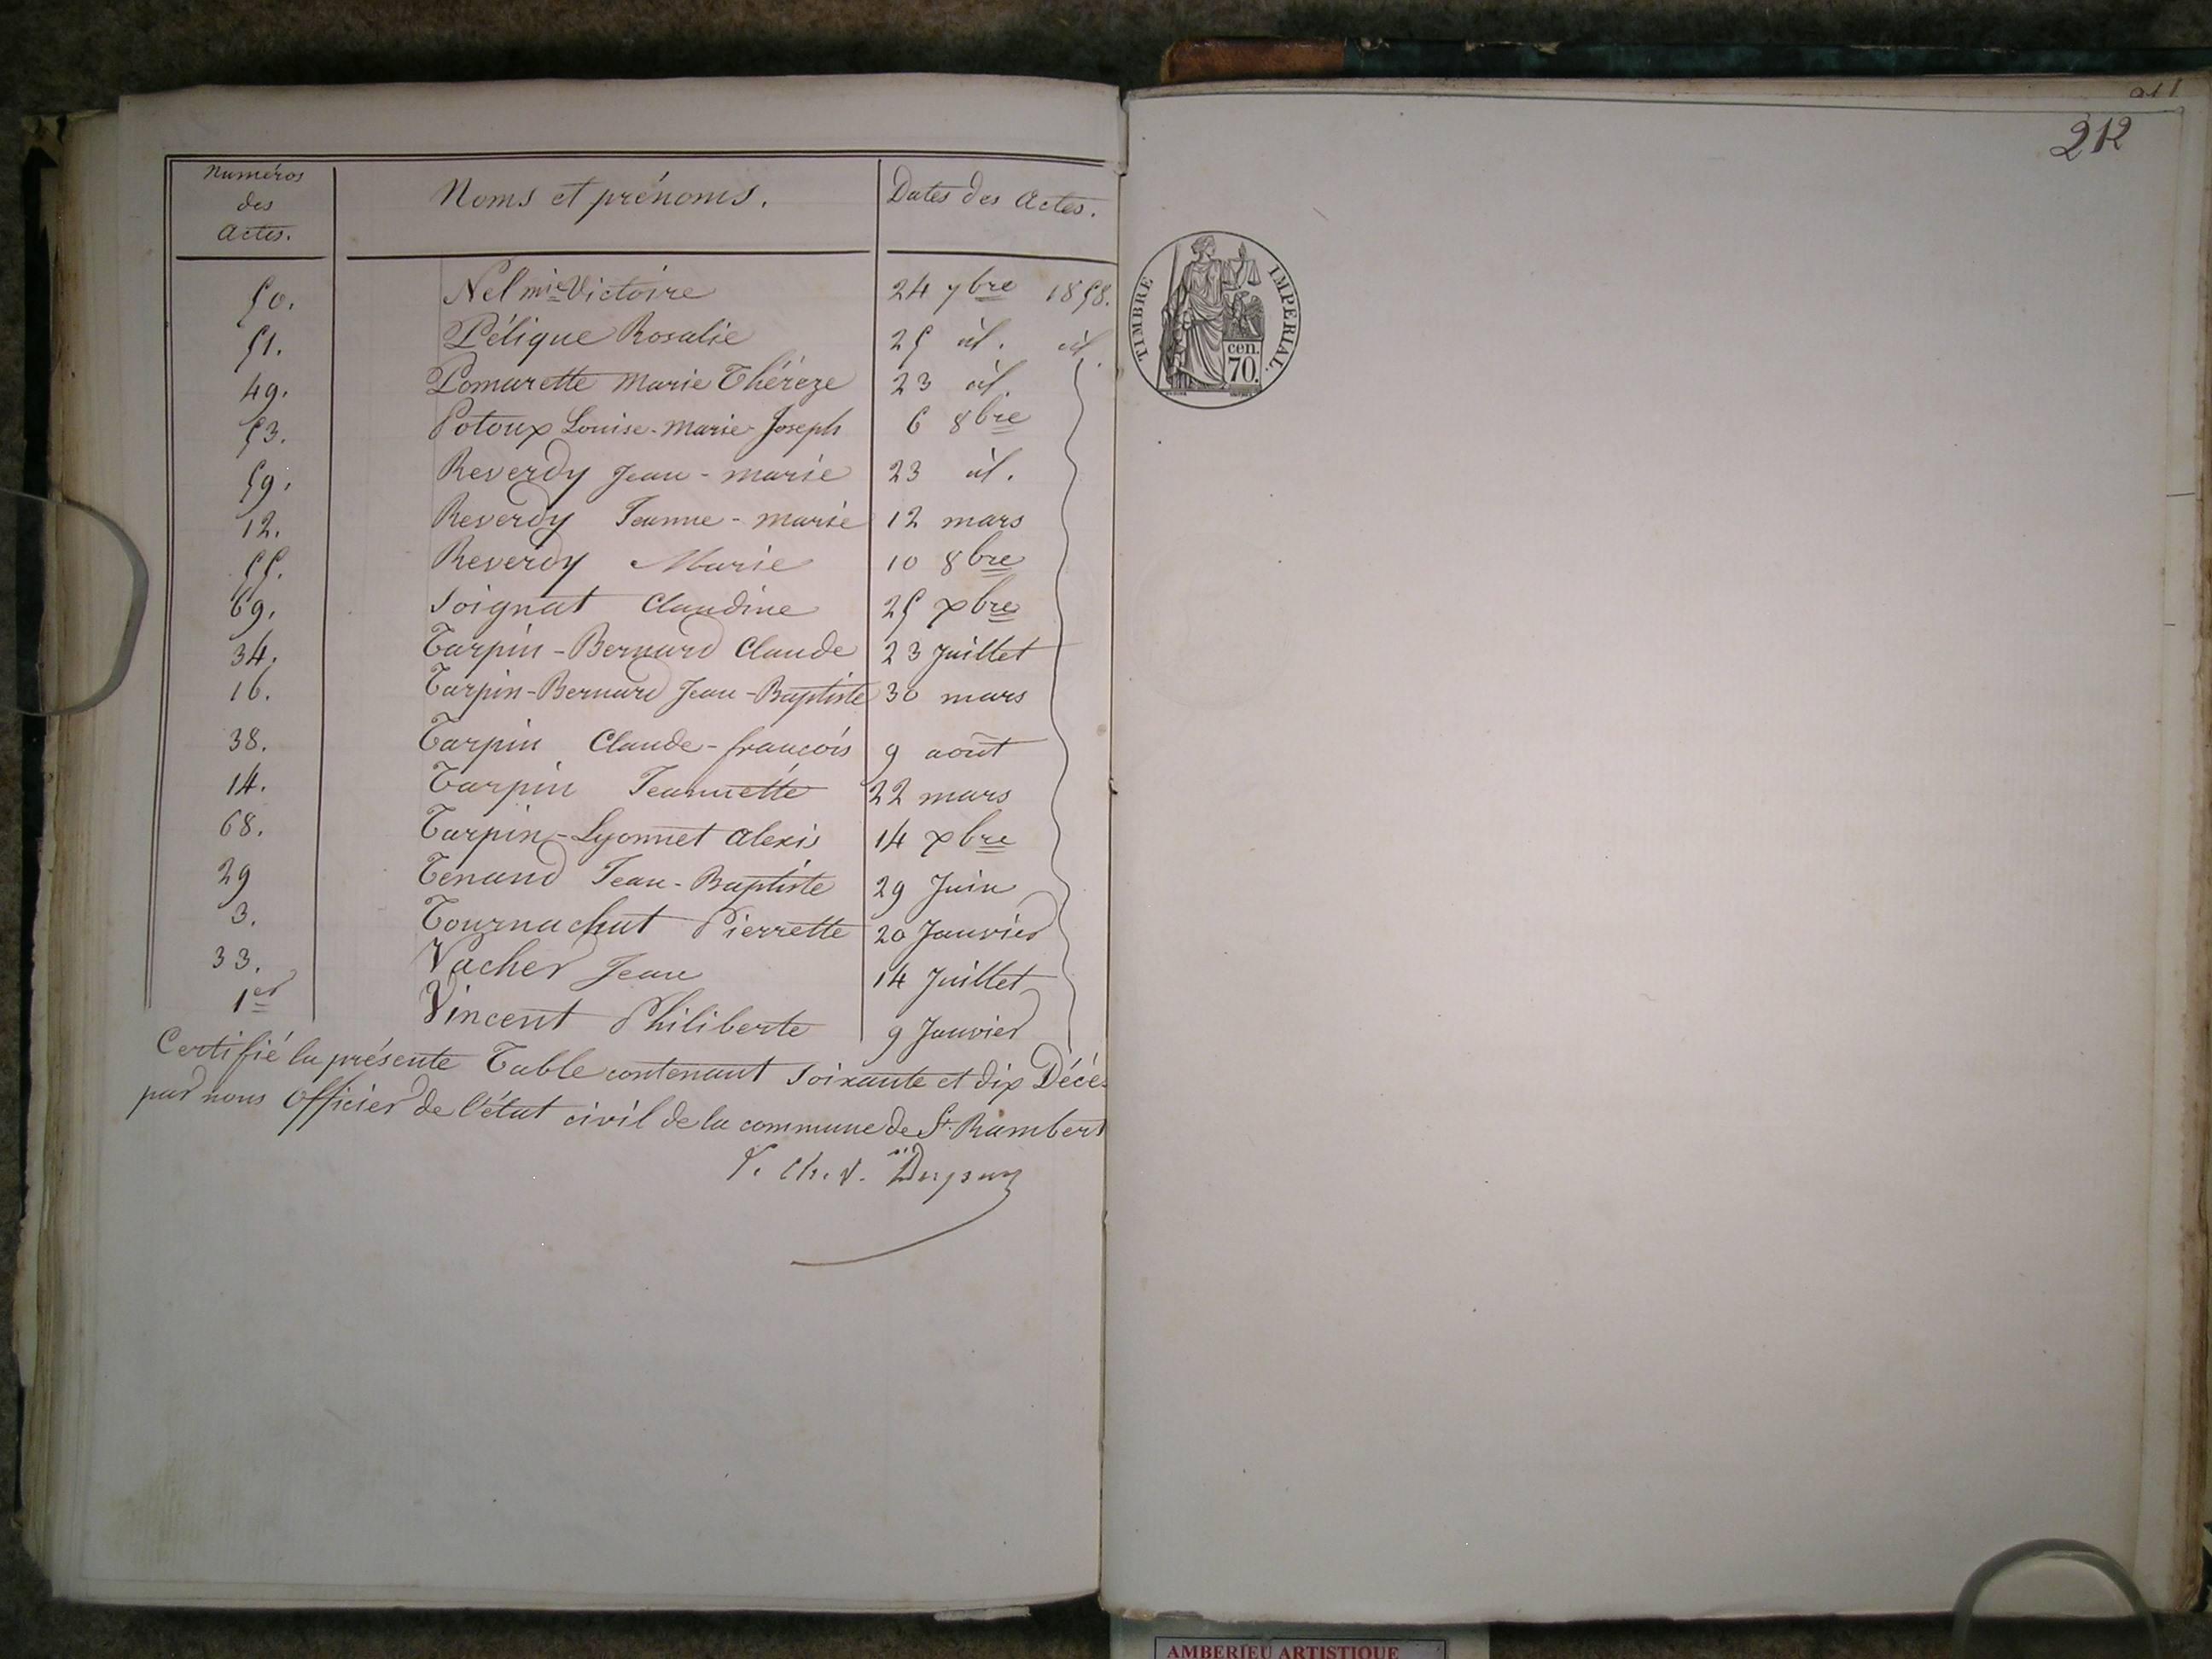 Numéros des Actes. Noms et prénoms. Dates des Actes.
50. Nel Mie Victoire 24 7bre 1858.
51. Pélique Rosalie 25 id. id.
49. Pomarette Marie Thérèze 23 id.
53. Potoux Louise-Marie-Joseph 6 8bre
59. Reverdy Jean-Marie 23 id.
12. Reverdy Jeanne-Marie 12 mars
55. Reverdy Marie 10 8bre
69. Soignat Claudine 25 Xbre
34. Tarpin-Bernard Claude 23 Juillet
16. Tarpin-Bernard Jean-Baptiste 30 mars
38. Tarpin Claude-françois 9 août
14. Tarpin Jeannette 22 mars
68. Tarpin-Lyonnet Alexis 14 Xbre
29 Tenand Jean-Baptiste 29 Juin
3. Tournachut Pierrette 20 Janvier
33. Vacher Jean 14 Juillet
1er Vincent Philiberte 9 Janvier
Certifié la présente Table contenant soixante et dix Décès
par nous Officier de l'état civil de la commune de St. Rambert
212
TIMBRE IMPERIAL.
cen.
70.
AMBERIEU ARTISTIQUE